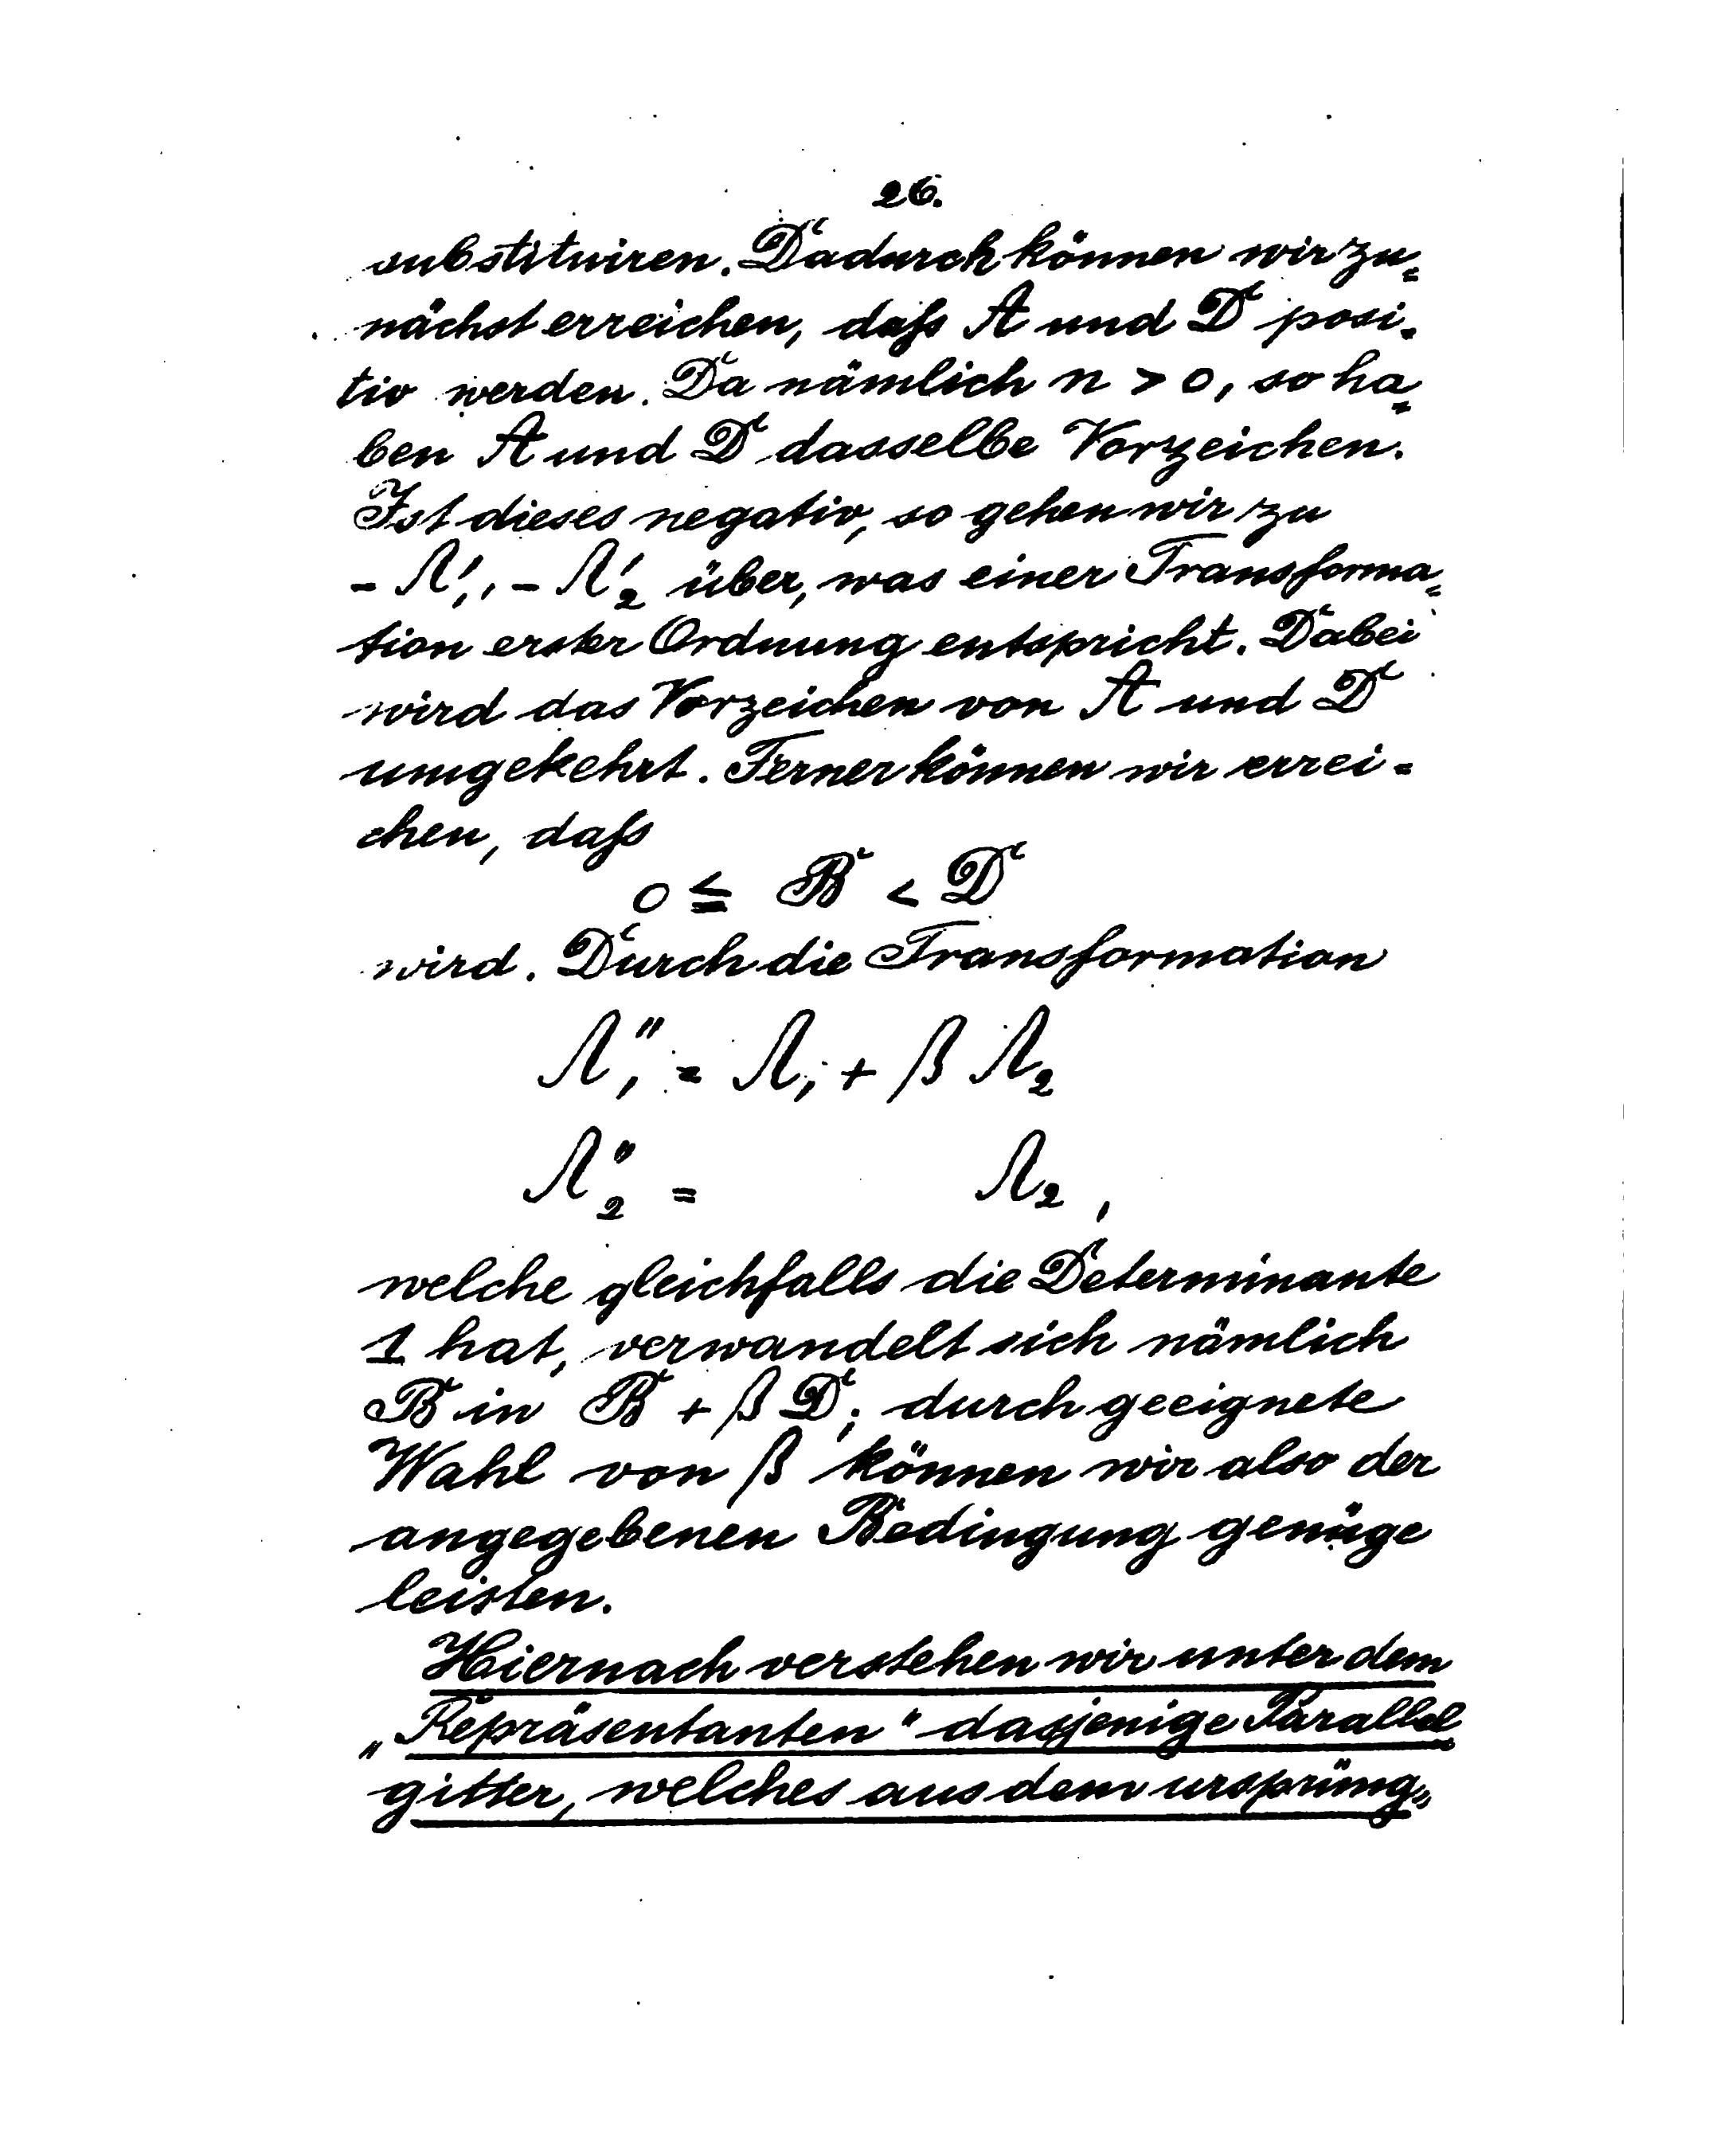 26.
substituiren. Dadurch können wir zu=
nächst erreichen, daſs A und D posi-
tiv werden. Da nämlich n > 0, so ha=
ben A und D dasselbe Vorzeichen.
Ist dieses negativ, so gehen wir zu
- Λ'₁, - Λ'₂ über, was einer Transforma=
tion erster Ordnung entspricht. Dabei
wird das Vorzeichen von A und D
umgekehrt. Ferner können wir errei=
chen, daſs
0 ≦ B < D
wird. Durch die Transformation
Λ''₁ = Λ₁ + β Λ₂
Λ''₂ = Λ₂,
welche gleichfalls die Determinante
1 hat, verwandelt sich nämlich
B in B + β D; durch geeignete
Wahl von β können wir also der
angegebenen Bedingung genüge
leisten.
Hiernach verstehen wir unter dem
„Repräsentanten" dasjenige Parallel
gitter, welches aus dem ursprüng=